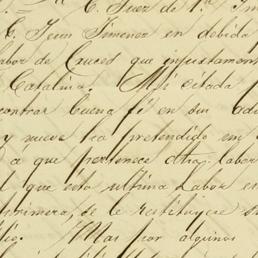 C. Juez de 1ª In
C. Jesus Jimenez en debida
Labor de Cruces que injustamen
Catalina. Mi citada
contrar buena fé en su ad
y nueve ha pretendido em
a que pertenece otra labor
l que esta ultima Labor e
primera, de le restituyese s
Mas por algunos